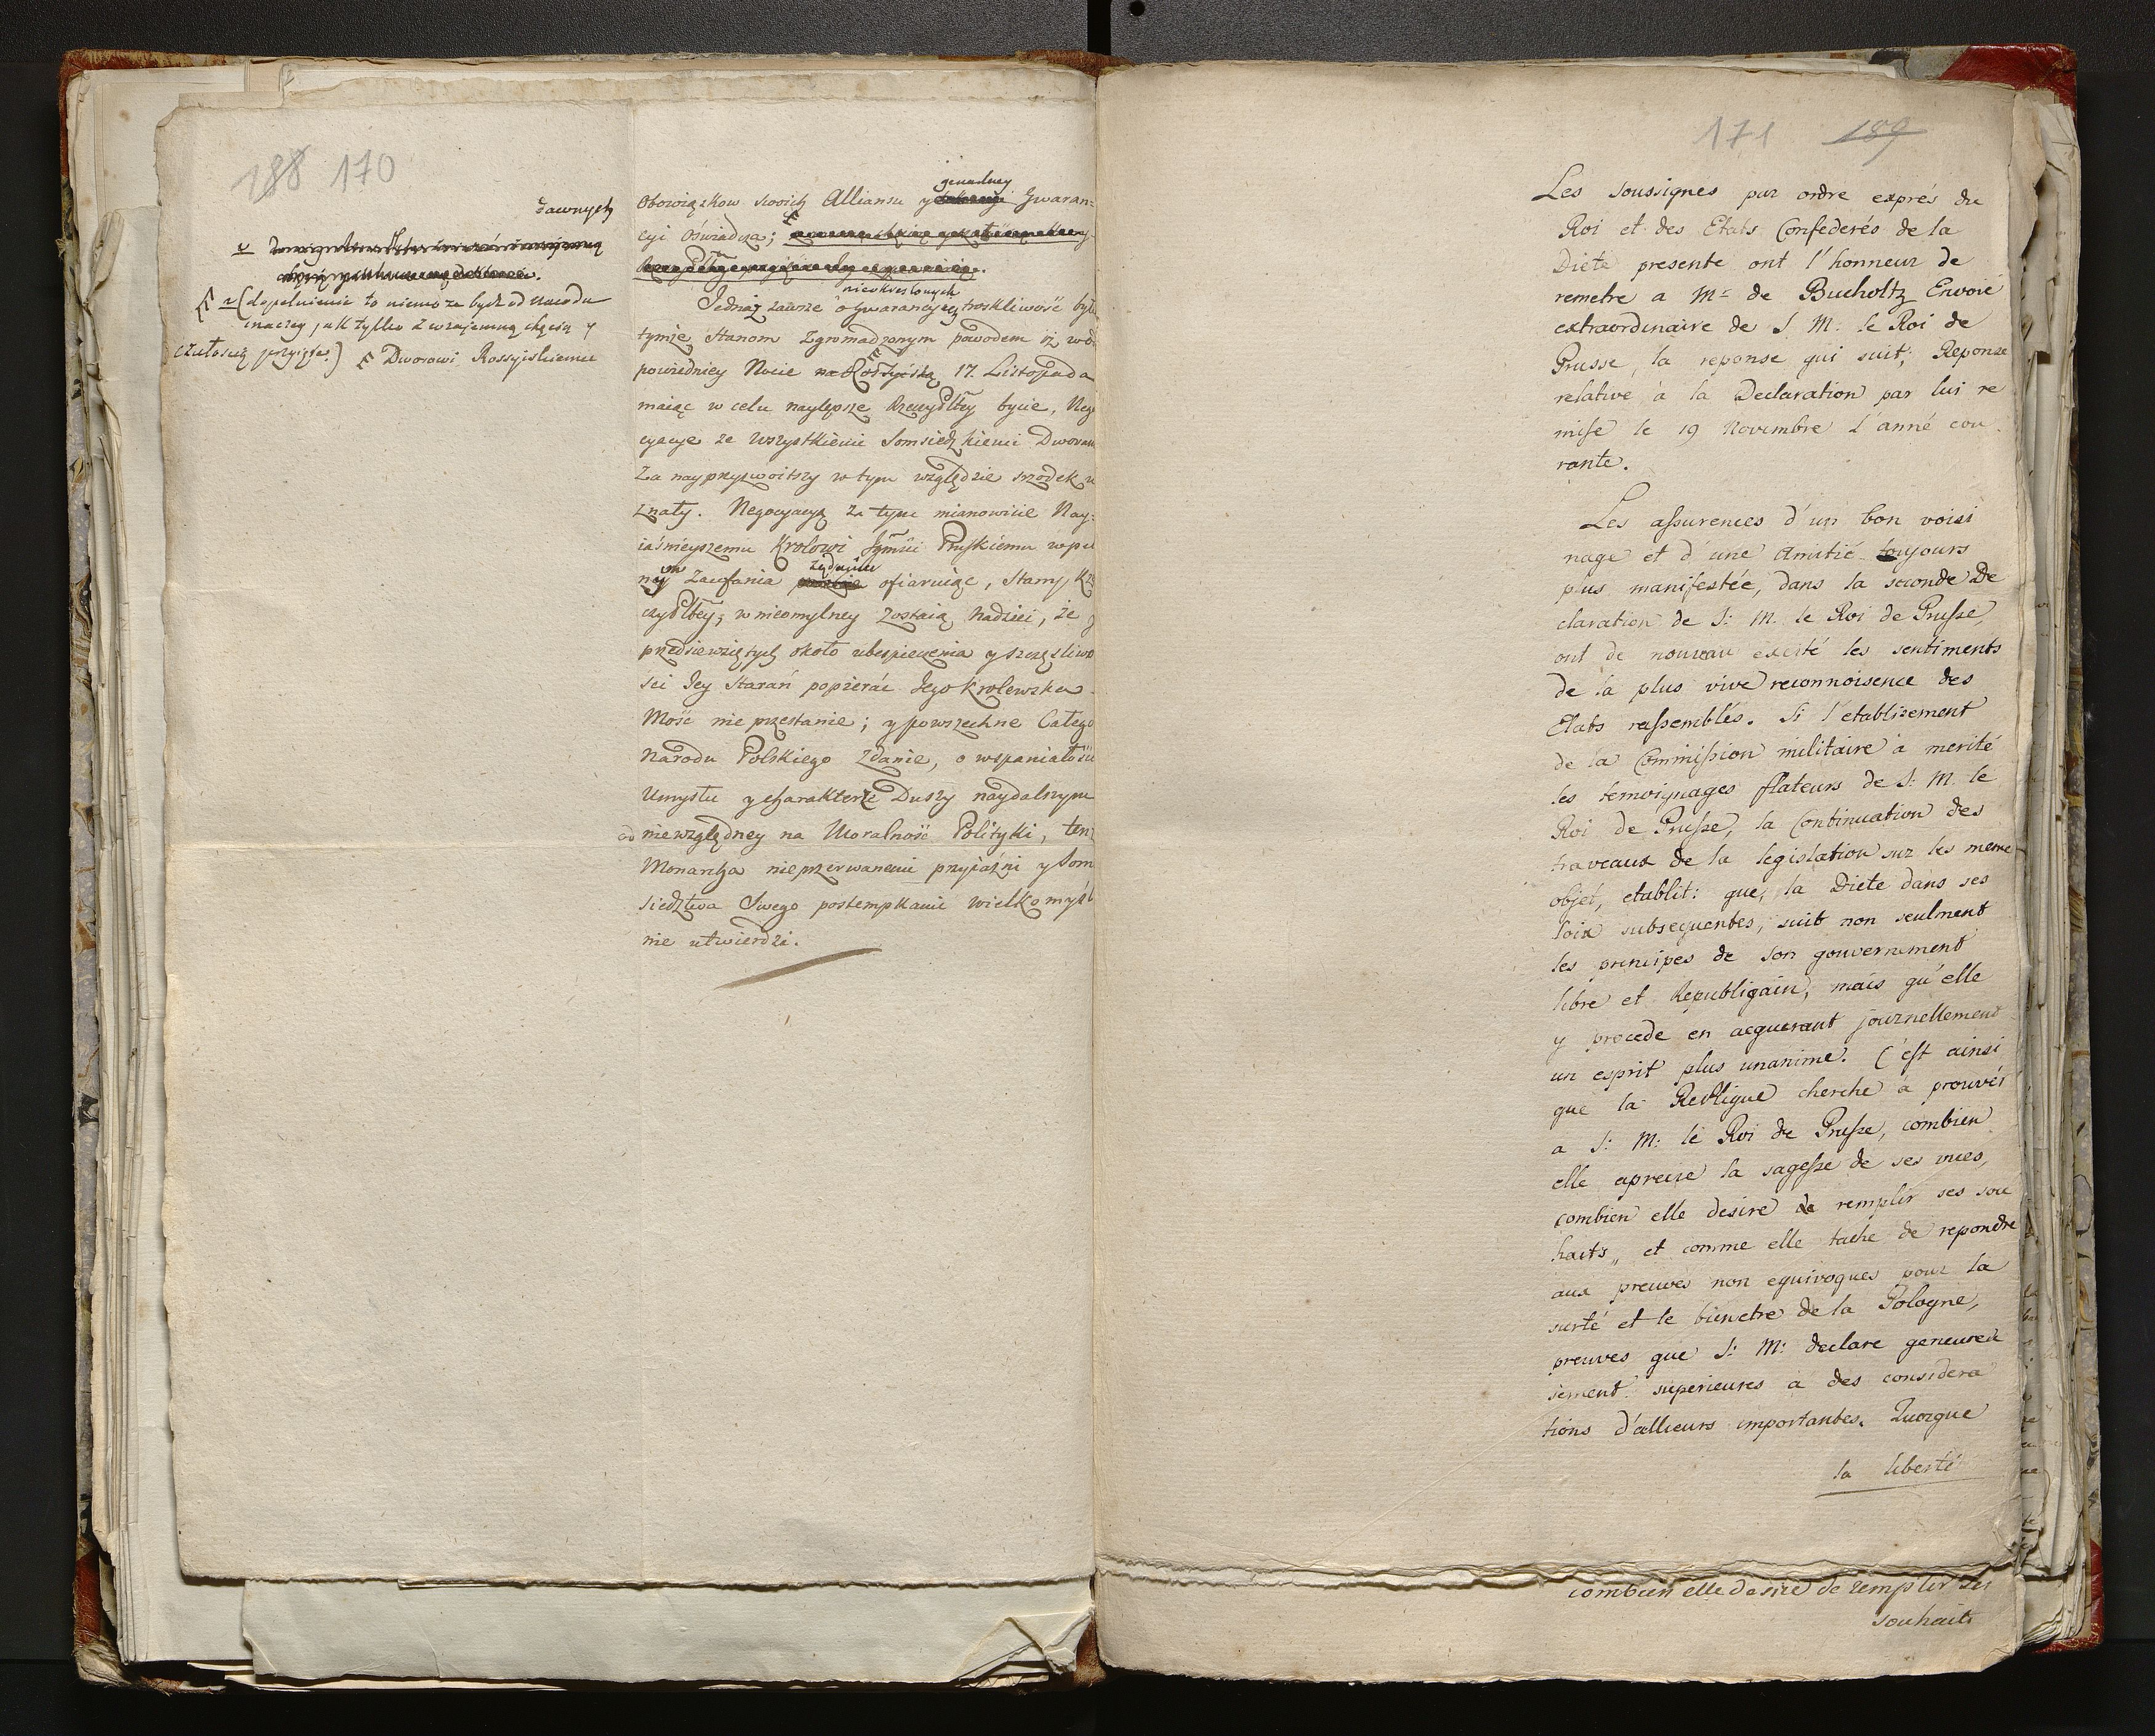 188 170
dawnych
(dopełnienie to niemoże bydz od Narodu
inaczey, jak tylko z wzajemną chęcią y
czułością przyięte.) Dworowi Rossyiskiemu
Obowiązkow swoich Alliansu y generalney Gwaran=
cyi Oświadcza;
nieokreslonych
Jednaż zawsze o Gwarancyey troskliwość był
tymże Stanom Zgromadzonym powodem iż w od
powiedniey Nocie na Rossyiską 17. Listopada
maiąc w celu naylepsze Rzeczypltey bycie, Neg
cyacye ze wszystkiemi Somsiedzkiemi Dworam
Za nayprzyzwoitszy w tym względzie srzodek u
znały. Negocyacyą za tym mianowicie Nay:
iaśnieyszemu Krolowi Jgmsci Pruskiemu w pe
Zaufania ofiaruiąc, Stany Rz
czypltey, w nieomylney zostaią Nadziei, że
przedsiewziętych około ubespieczenia y szczęsliwo
sci Jey Starań popierać Jego Krolewska
Mość nie przestanie; y powszechne Całego
Narodu Polskiego Zdanie, o wspaniałości
Umysłu y charakterze Duszy naydalszym
od niewzględney na Moralność Polityki, ten
Monarcha nieprzerwanemi przyiaźni y Som
siedztwa Swego postempkami wiekkomyśl
nie utwierdzi.
171 189
Les soussignés par ordre exprés du
Roi et des Etats Confederés de la
Diete presente ont l'honneur de
remetre a Mr de Bucholtz Envoié
extraordinaire de S. M. le Roi de
Prusse, la reponse qui suit; Reponse
relative à la Declaration par lui re
mise le 19 Novembre l'anné cou
rante.
Les assurences d'un bon voisi
nage et d'une Amitié toujours
plus manifestée, dans la seconde De
claration de S: M. le Roi de Prusse,
ont de nouveau exerté les sentiments
de la plus vive reconnoisence des
Etats rassemblés. Si l'etablisement
de la Commission militaire a merité
les temoignages flateurs de S: M. le
Roi de Prusse, la Continuation des
traveaux de la legislation sur les meme
objet, etablit: que, la Diete dans ses
loix subsequentes, suit non seulment
les principes de son gouvernement
libre et Republiqain, mais qu'elle
y procede en acquerant journellement
un esprit plus unanime. C'est ainsi
que la Reblique cherche a prouvér
a S: M: le Roi de Prusse, combien
elle aprecie la sagesse de ses vues,
combien elle desire de remplir ses sou
haits„ et comme elle tache de repondre
aux preuves non equivoques pour la
surté et le bienetre de la Pologne,
preuves que S: M: declare genereu
sement superieures a des considera
tions d'allieurs importantes. Quoique
la liberté
combien elle desire de remplir ses
souhaits